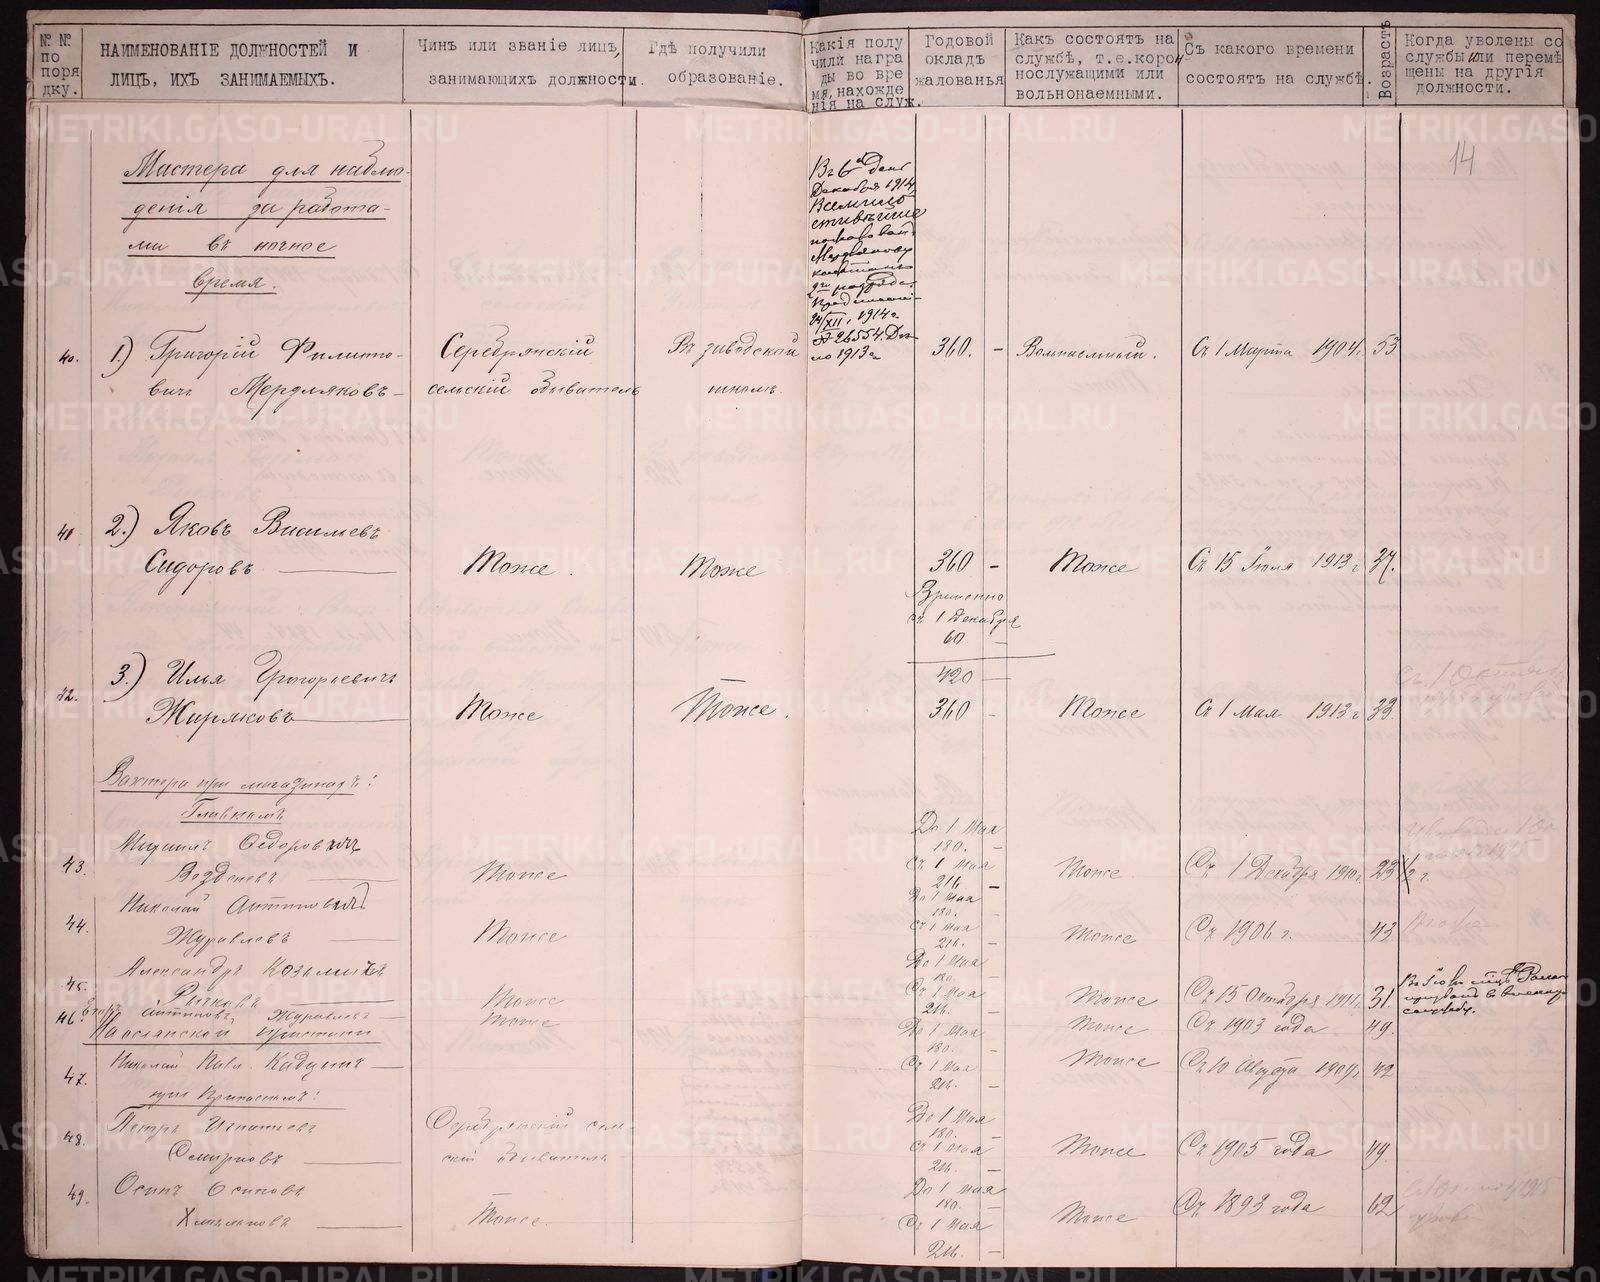 № № по поря дку.
НАИМЕНОВАНІЕ ДОЛЖНОСТЕЙ И
ЛИЦЪ, ИХЪ ЗАНИМАЕМЫХЪ.
Чинъ или званіе лицъ,
занимающихъ должности.
Гдѣ получили
образованіе.
Какія полу
чили награ
ды во вре
мя, нахожде
нія на служ.
Годовой
окладъ
жалованья
Какъ состоятъ на
службѣ, т.е. корон
нослужащими или
вольнонаемными.
Съ какого времени
состоятъ на службѣ
Возрастъ
Когда уволены со
службы или перемѣ
щены на другія
должности.
14
Мастера для наблю-
денія за работа-
ми въ ночное
время.
Въ 6й день
Декабря 1914
Всемило
стивѣйше
кафтанъ
2го разряда
24/XII 1914 г.
№ 26554. Дѣ
ло 1913 г.
40. 1) Григорій Филиппо-
вичъ Мерзляковъ —
Серебрянскій
сельскій обыватель
Въ заводской
школѣ
360. —
Вольнаемный.
Съ 1 Марта 1904 г. 53
41. 2.) Яковъ Васильевъ
Сидоровъ —
Тоже.
Тоже
360 —
Тоже
Съ 15 Іюля 1913 г. 37.
Временно
съ 1 Декабря
60 —
420 —
42. 3.) Илья Григорьевичъ
Жиряковъ —
Тоже
Тоже.
360 —
Тоже
Съ 1 Мая 1913 г. 33
Вахтера при магазинахъ:
Главномъ
43. Михаилъ Федоровичъ
—
Тоже
До 1 Мая
180. —
Съ 1 Мая
216. —
Тоже.
Съ 1 Декабря 1910 г. 23 1/2 г.
44. Николай Антиповичъ
Журавлевъ —
Тоже
До 1 Мая
180. —
Съ 1 Мая
216. —
Тоже
Съ 1906 г. 43
45. Александръ Козьмичъ
Рычковъ —
Тоже
До 1 Мая
180. —
Съ 1 Мая
216. —
Тоже
Съ 15 Октября 1911 г. 31.
службу.
46. Егоръ Антиповъ Журавлевъ —
Тоже
Тоже
Съ 1903 года 49.
На Ослянской пристани
До 1 Мая
180. —
47. Николай Павл. —
Съ 1 Мая
216. —
Тоже
Съ 10 Августа 1904 г. 42
48. Петръ Игнатьевъ
Смирновъ —
Серебрянскій сель-
скій обыватель
До 1 Мая
180. —
Съ 1 Мая
216. —
Тоже
Съ 1905 года 49.
49. Осипъ Осиповъ
—
Тоже.
До 1 Мая
180. —
Съ 1 Мая
216. —
Тоже
Съ 1893 года 62
METRIKI.GASO-URAL.RU